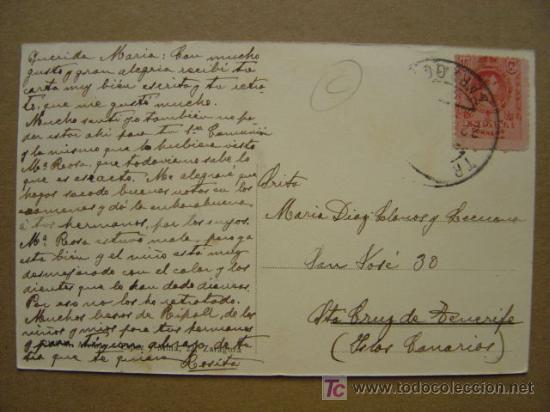 Querida Maria: Con mucho
gusto y gran alegria recibi tu
carta muy bien escrita y tu retra-
to, que me gustó mucho.
Mucho sentí yo tambien no po-
der estar ahi para tu 1ra Comunión
y lo mismo que te hubiera visto
Mª Rosa, que todavia no sabe lo
que es exacto. Me alegraré que
hayas sacado buenas notas en los
examenes y dá la enhorabuena
á tus hermanos, por los suyos.
Mª Rosa estuvo mala, pero ya
esta bien y el niño está muy
desmejorado con el calor y los
dientes que le han dado
Por eso no los he retratado.
Muchos besos de Ripoll, de los
niños y mios para tus hermanos
y para ti un abrazo de tu
tia que te quiere
Rosita
Zaragoza
Srita
Maria Diaz Llanos y Lecuona
San José 30
Sta Cruz de Tenerife
(Islas Canarias)
TC todocoleccion.net